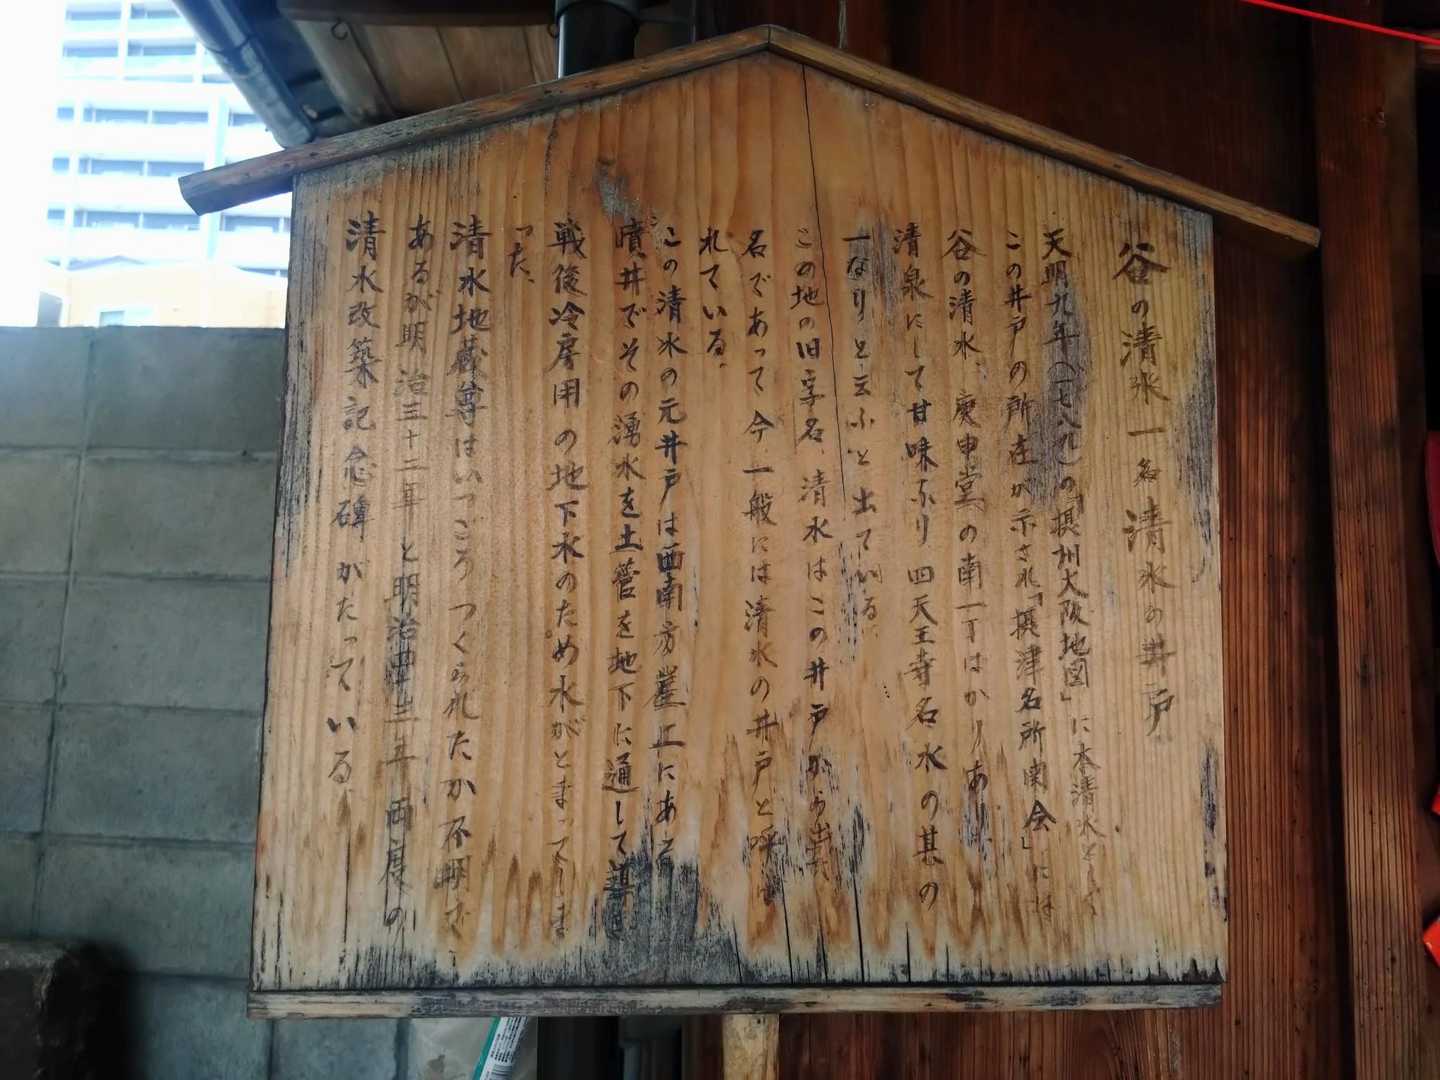 谷の清水一名清水の井戸
天明九年(一七八九)の「摂州大阪地図」に本清水として
この井戸の所在が示され「摂津名所図会」には
谷の清水、庚申堂の南一丁はかりあり
清泉にして甘味なり四天王寺名水の其の
一なりと云ふと出ている
この地の旧字名清水はこの井戸から出た
名であって今、一般には清水の井戸と呼ば
れている
この清水の元井戸は西南方崖上にある
噴井でその湧水を土管を地下に通して導き
戦後冷房用の地下水のため水がとまってしま
った、
清水地蔵尊はいつごろつくられたか不明で
あるが明治三十二年と明治四十三年両度の
清水改築記念碑がたっている